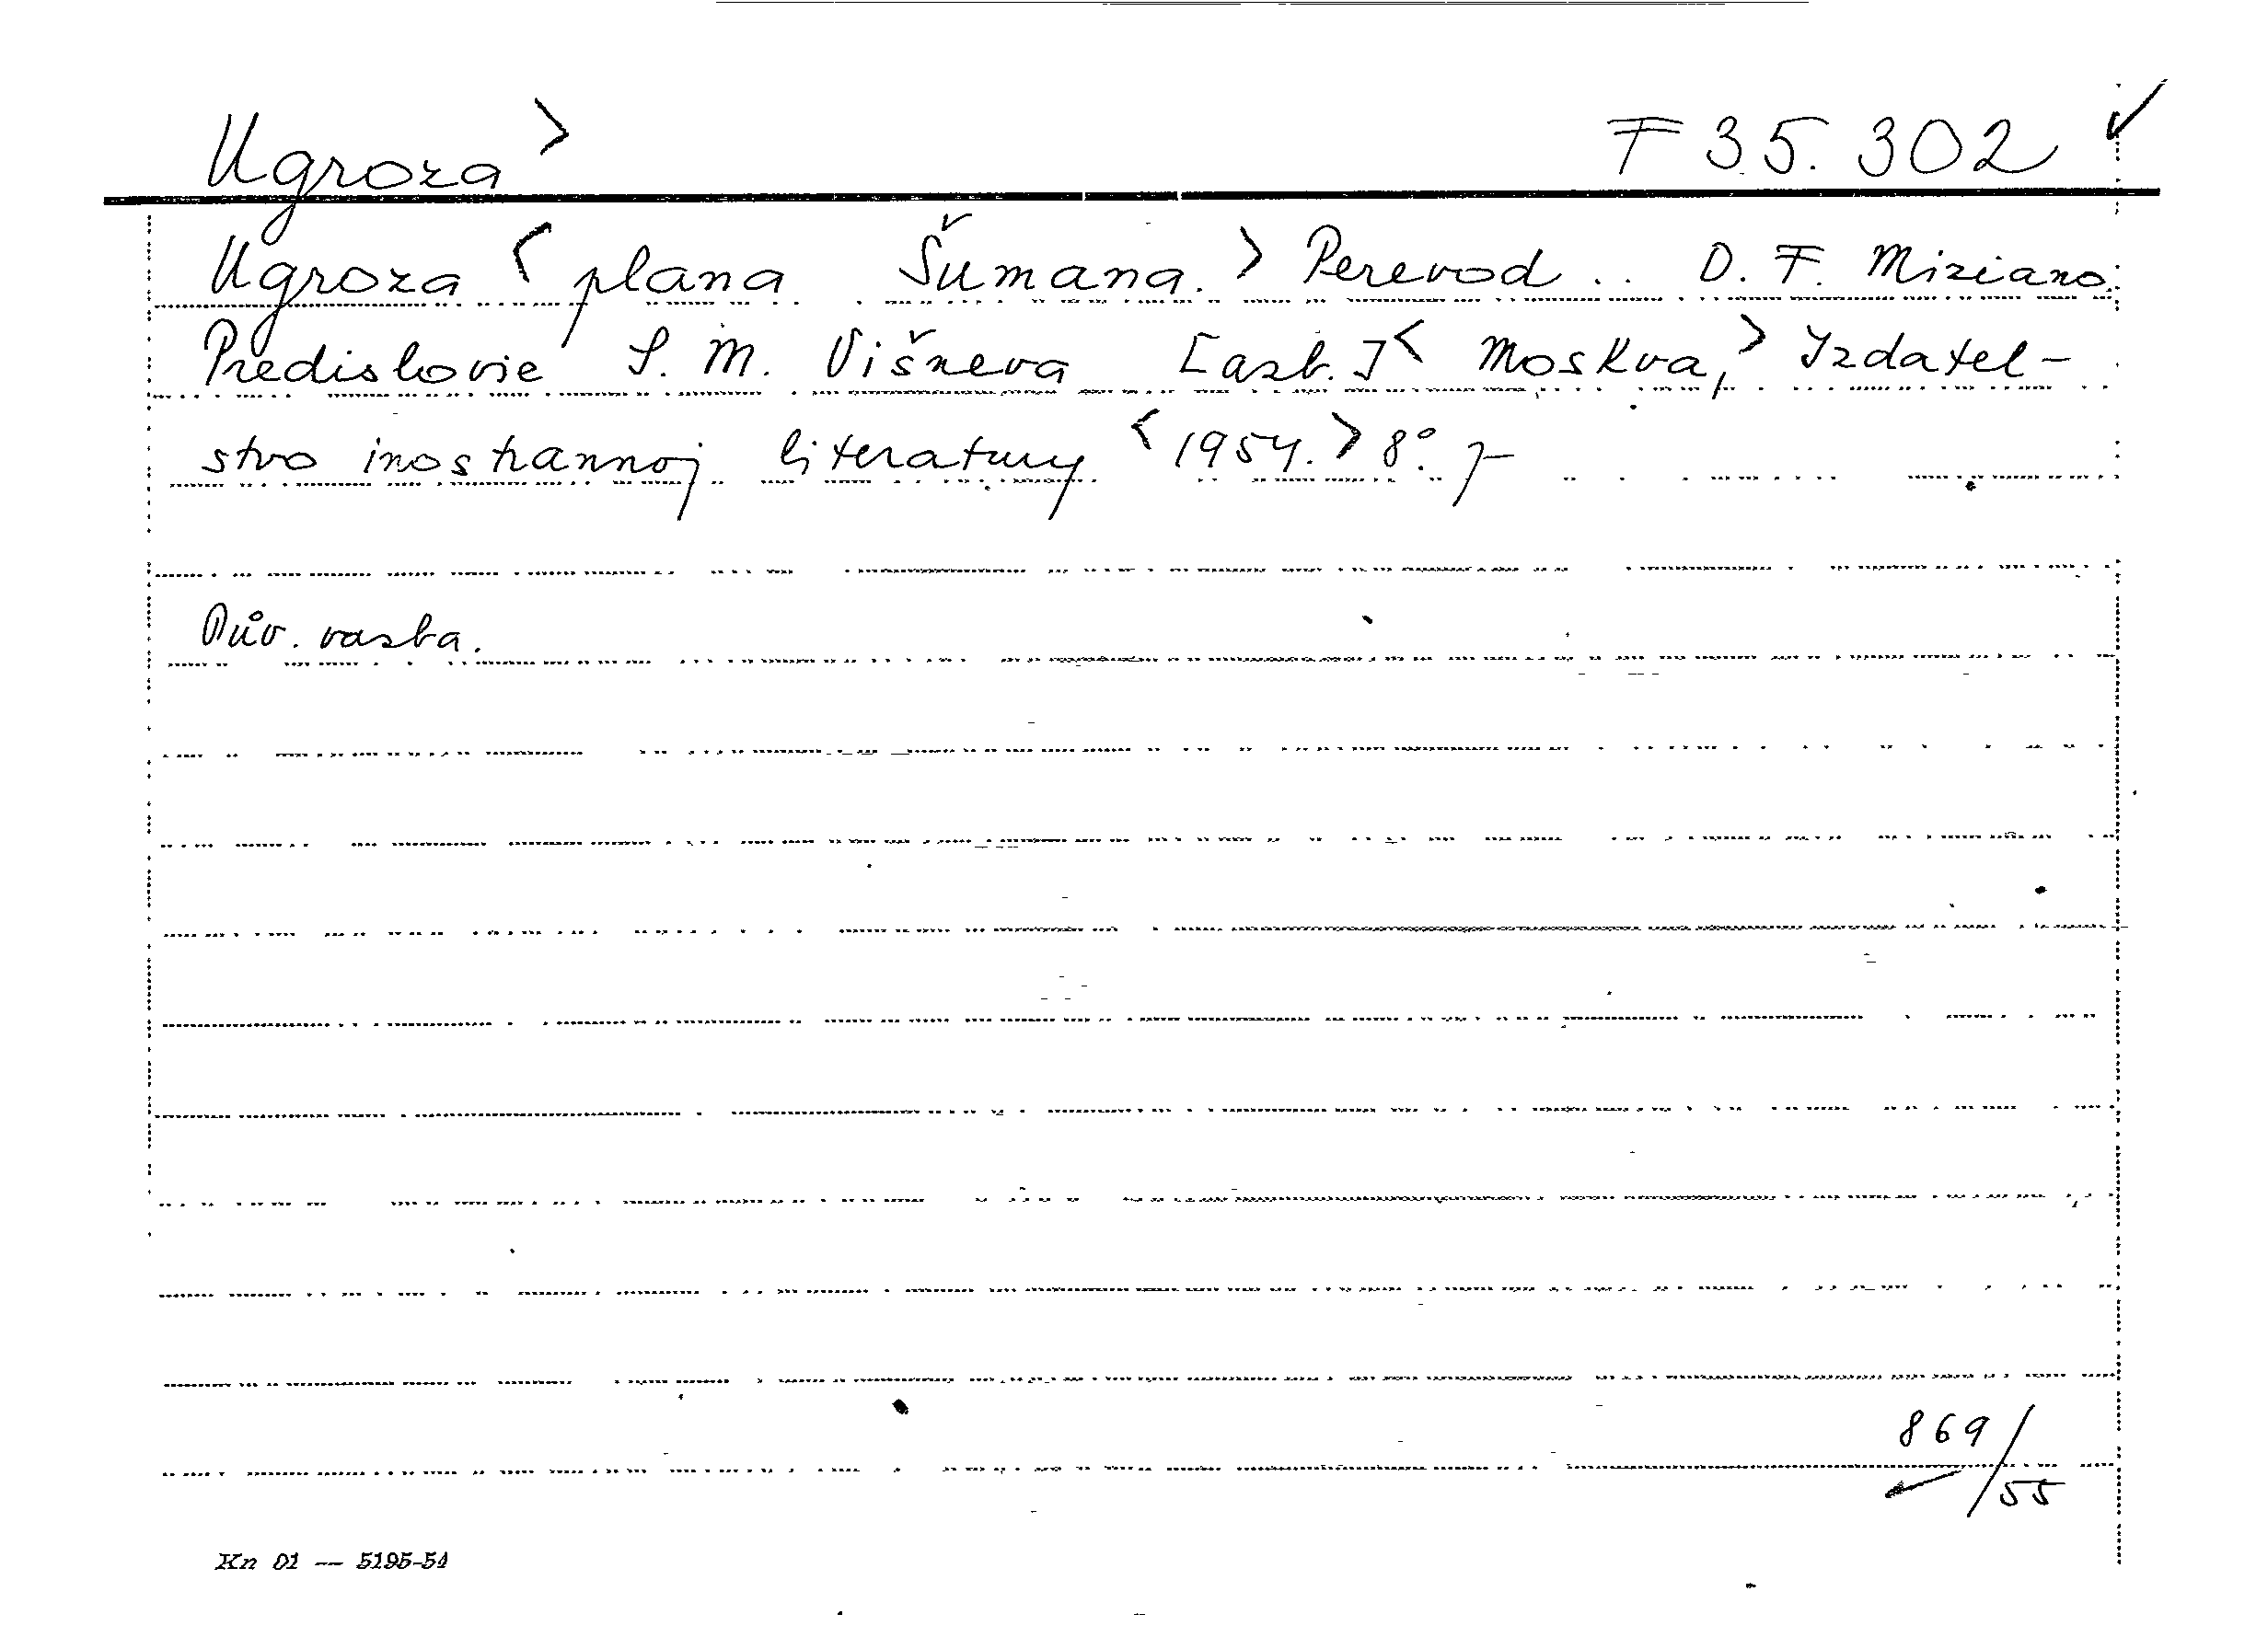 Ugroza > F 35.302 ✓
Ugroza < plana Šumana. > Perevod .. D. F. Miziano.
Predislovie S. M. Višneva [azb.] < Moskva, > Izdatel-
stvo inostrannoj literatury < 1954. > 8°.
Pův. vazba.
869/55
Kn 01 — 5195-54